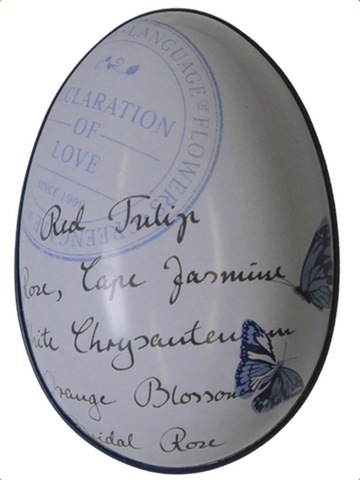 LANGUAGE of FLOWER
CLARATION
OF
LOVE
SINCE 199
Red Tulip
Rose, Cape Jasmine
hite Chrysantemum
Orange Blossom
idal Rose